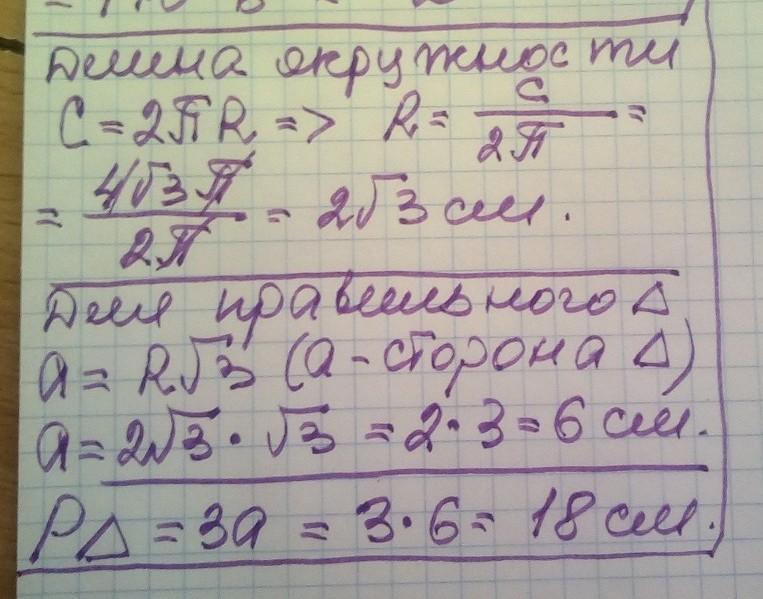 Длина окружности
C = 2πR => R = C/2π =
= 4√3π/2π = 2√3 см.
Для правильного Δ
a = R√3 (a - сторона Δ)
a = 2√3 · √3 = 2 · 3 = 6 см.
PΔ = 3a = 3 · 6 = 18 см.